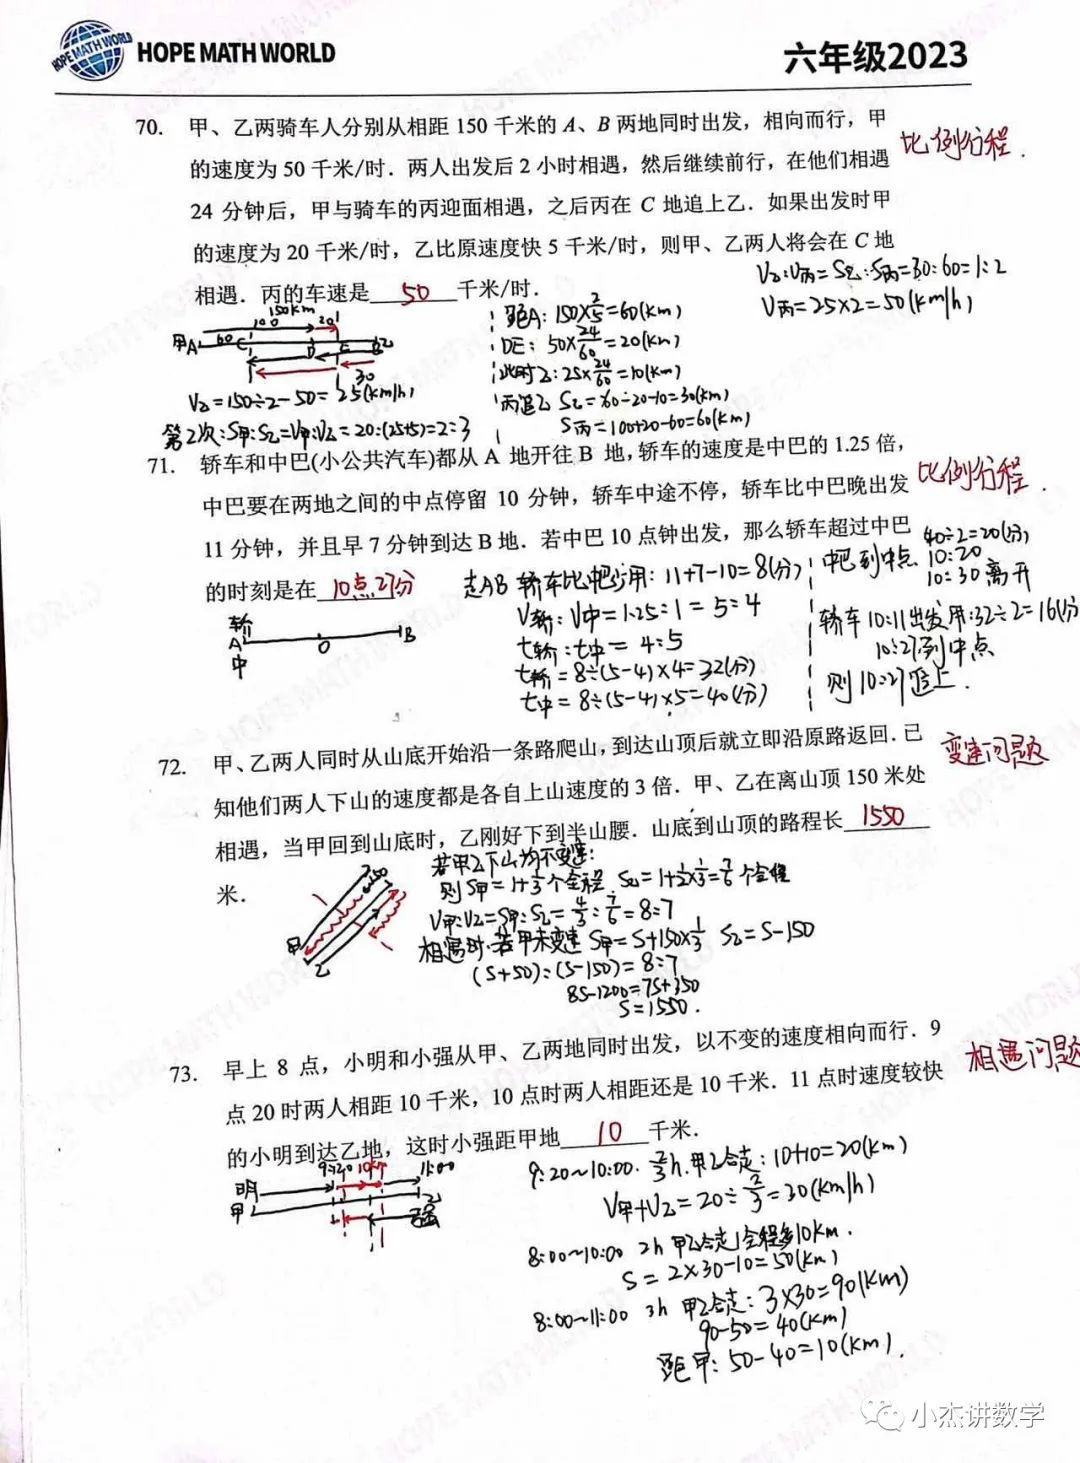 HOPE MATH WORLD
HOPE MATH WORLD
六年级2023
70. 甲、乙两骑车人分别从相距 150 千米的 A、B 两地同时出发，相向而行，甲
的速度为 50 千米/时．两人出发后 2 小时相遇，然后继续前行，在他们相遇
24 分钟后，甲与骑车的丙迎面相遇，之后丙在 C 地追上乙．如果出发时甲
的速度为 20 千米/时，乙比原速度快 5 千米/时，则甲、乙两人将会在 C 地
相遇．丙的车速是 50 千米/时．
比例行程．
V乙:V丙=S乙:S丙=30:60=1:2
V丙=25×2=50(km/h)
150km
100 20
甲A 60 C D E B乙
30
V乙=150÷2-50=25(km/h)
第2次:S甲:S乙=V甲:V乙=20:(25+5)=2:3
距A: 150×2/5=60(km)
DE: 50×24/60=20(km)
此时乙: 25×24/60=10(km)
丙追乙 S乙=60-20-10=30(km)
S丙=100+20-60=60(km)
71. 轿车和中巴(小公共汽车)都从 A 地开往 B 地，轿车的速度是中巴的 1.25 倍，
中巴要在两地之间的中点停留 10 分钟，轿车中途不停，轿车比中巴晚出发
11 分钟，并且早 7 分钟到达 B 地．若中巴 10 点钟出发，那么轿车超过中巴
的时刻是在 10点27分
比例行程．
轿
A O B
中
走AB 轿车比中巴少用: 11+7-10=8(分)
V轿:V中=1.25:1=5:4
t轿:t中=4:5
t轿=8÷(5-4)×4=32(分)
t中=8÷(5-4)×5=40(分)
40÷2=20(分)
中巴到中点 10:20
10:30 离开
轿车 10:11出发 用:32÷2=16(分)
10:27到中点
则10:27追上．
72. 甲、乙两人同时从山底开始沿一条路爬山，到达山顶后就立即沿原路返回．已
知他们两人下山的速度都是各自上山速度的 3 倍．甲、乙在离山顶 150 米处
相遇，当甲回到山底时，乙刚好下到半山腰．山底到山顶的路程长 1550
米．
变速问题
150
甲
乙
若甲乙下山均不变速:
则S甲=1+1/3个全程 S乙=1+1/2×1/3=7/6个全程
V甲:V乙=S甲:S乙=4/3:7/6=8:7
相遇时·若甲未变速 S甲=S+150×1/3 S乙=S-150
(S+50):(S-150)=8:7
8S-1200=7S+350
S=1550.
73. 早上 8 点，小明和小强从甲、乙两地同时出发，以不变的速度相向而行．9
点 20 时两人相距 10 千米，10 点时两人相距还是 10 千米．11 点时速度较快
的小明到达乙地，这时小强距甲地 10 千米．
相遇问题
9:20 10km 11:00
明
甲 乙
强
9:20~10:00. 2/3h 甲乙合走: 10+10=20(km)
V甲+V乙=20÷2/3=30(km/h)
8:00~10:00 2h 甲乙合走1全程多10km.
S=2×30-10=50(km)
8:00~11:00 3h 甲乙合走: 3×30=90(km)
90-50=40(km)
距甲: 50-40=10(km).
小杰讲数学